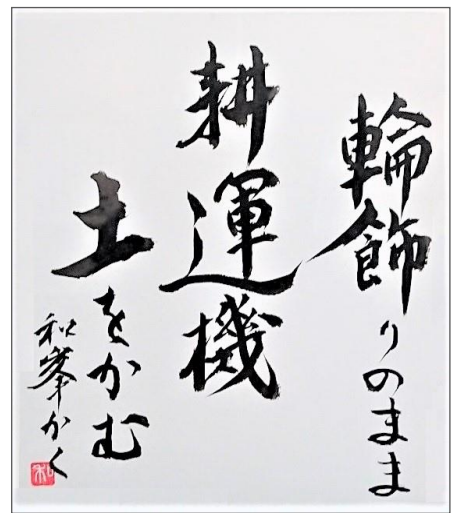 輪飾りのまま
耕運機
土をかむ
和峯かく